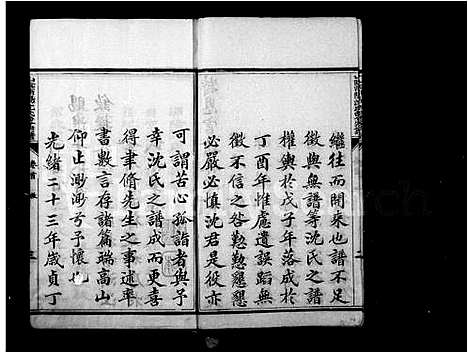 繼往而開來也譜不足
徵與無譜等沈氏之譜
權輿於戊子年落成於
丁酉年惟慮遺誤蹈無
徵不信之咎懃懃懇懇
必嚴必慎沈君是役亦
可謂苦心孤詣者與予
幸沈氏之譜成而更喜
得聿脩先生之事述率
書數言存諸篇端高山
仰止渺渺兮予懷也
光緒二十三年歲貞丁
卷首